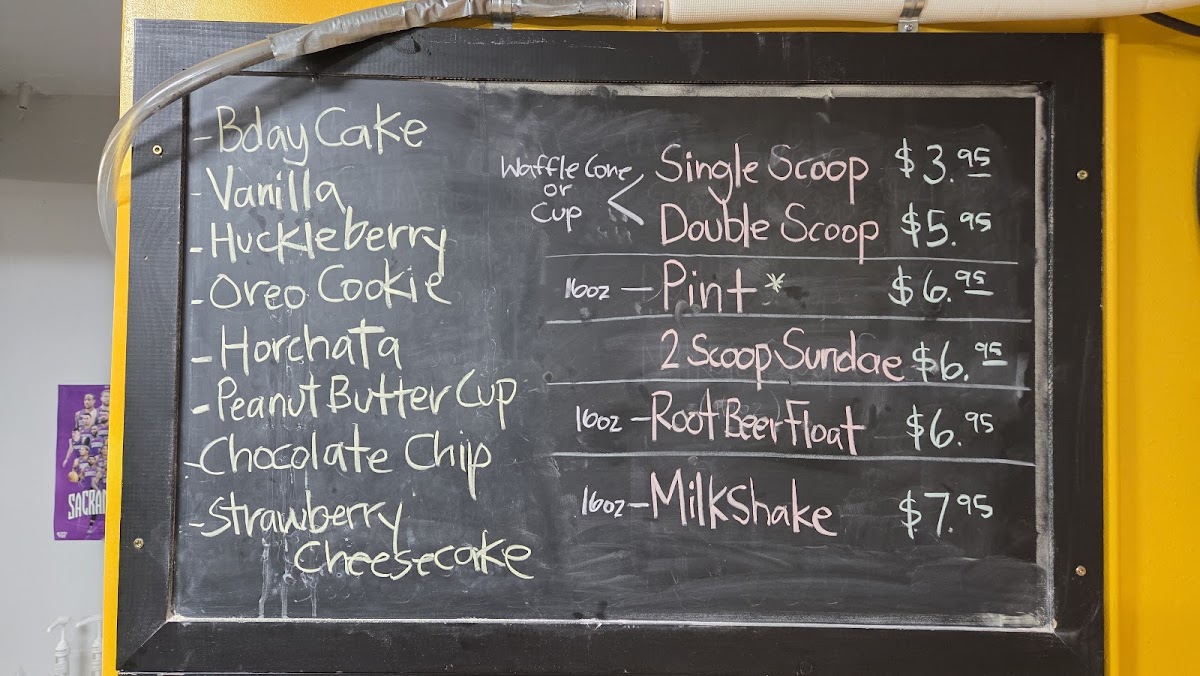 - Bday Cake
- Vanilla
- Huckleberry
- Oreo Cookie
- Horchata
- Peanut Butter Cup
- Chocolate Chip
- Strawberry
Cheesecake
Waffle Cone
or
Cup
Single Scoop $3.95
Double Scoop $5.95
16oz - Pint* $6.95
2 Scoop Sundae $6.95
16oz - Root Beer Float $6.95
16oz - Milkshake $7.95
SACRA